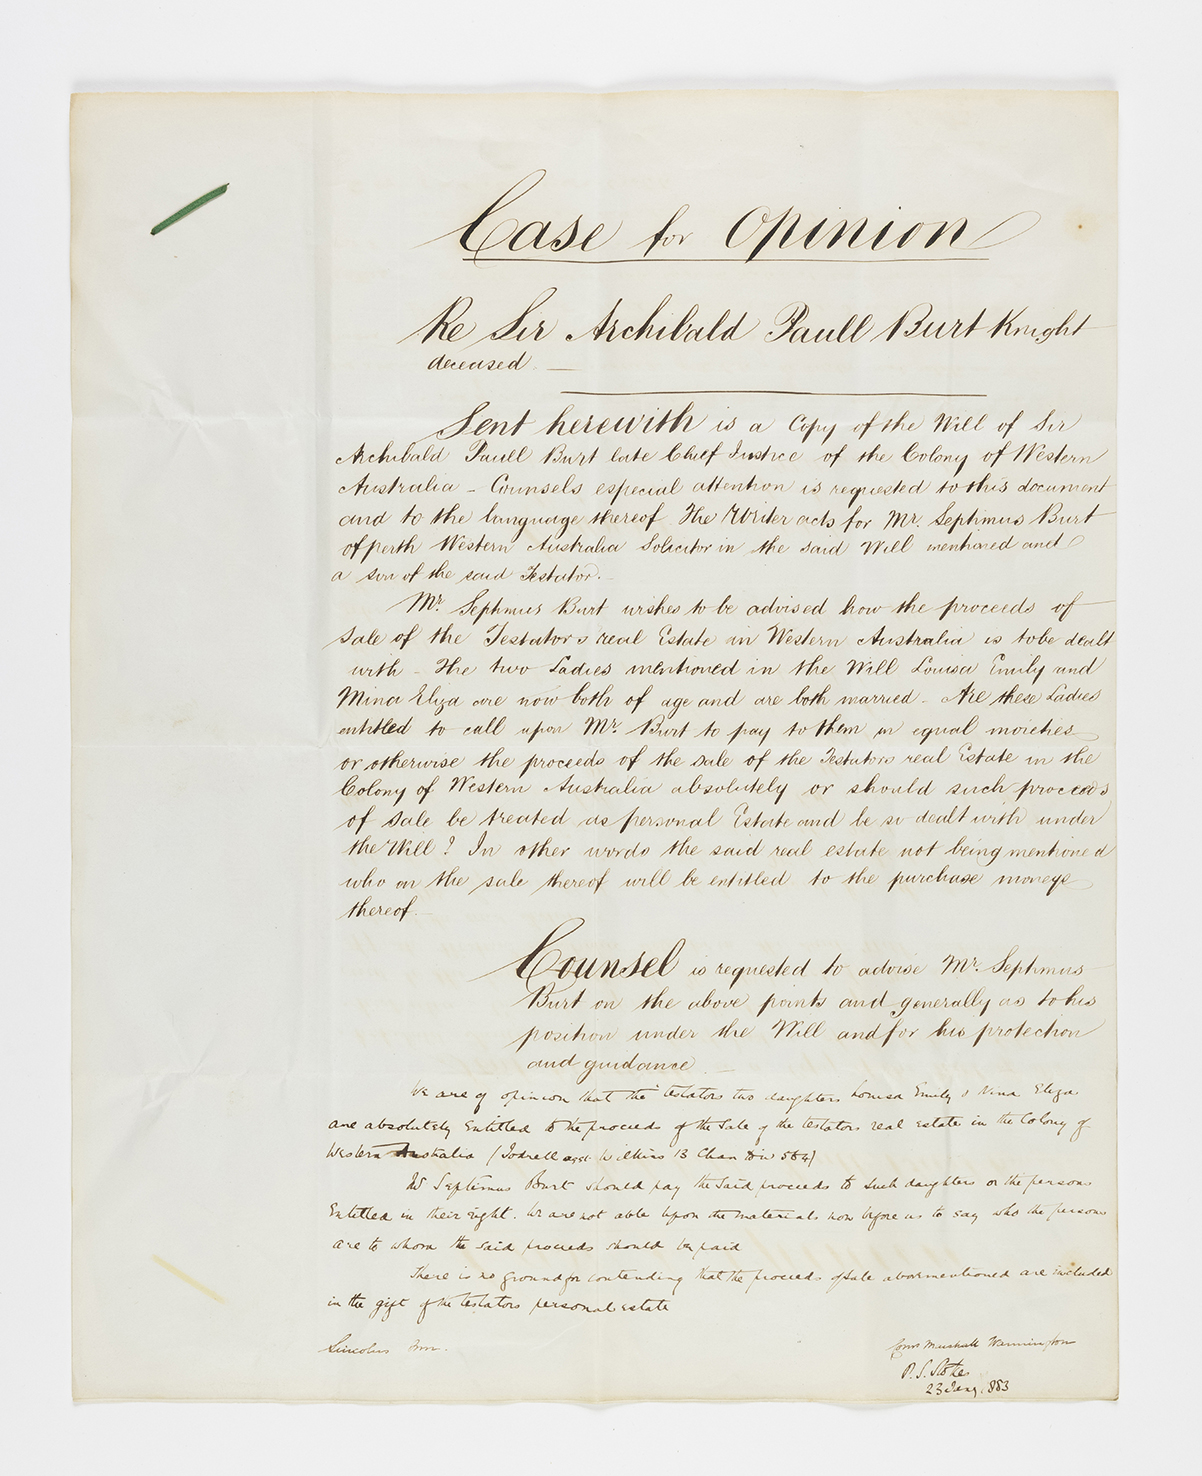 Case for Opinion
Re Sir Archibald Paull Burt Knight
deceased. —
Sent herewith is a Copy of the Will of Sir
Archibald Paull Burt late Chief Justice of the Colony of Western
Australia – Counsels especial attention is requested to this document
and to the language thereof. The Writer acts for Mr. Septimus Burt
of perth Western Australia Solicitor in the said Will mentioned and
a son of the said Testator.
Mr. Septimus Burt wishes to be advised how the proceeds of
Sale of the Testators real Estate in Western Australia is to be dealt
with – The two Ladies mentioned in the Will Louisa Emily and
Mina Eliza are now both of age and are both married – Are these Ladies
entitled to call upon Mr. Burt to pay to them in equal moieties
or otherwise the proceeds of the sale of the Testators real Estate in the
Colony of Western Australia absolutely or should such proceeds
of Sale be treated as personal Estate and be so dealt with under
the Will? In other words the said real estate not being mentioned
who on the sale thereof will be entitled to the purchase moneys
thereof.
Counsel is requested to advise Mr. Septimus
Burt on the above points and generally as to his
position under the Will and for his protection
and guidance. —
We are of opinion that the testators two daughters Louisa Emily & Nina Eliza
are absolutely Entitled to the proceeds of the Sale of the testators real estate in the Colony of
Western Australia ( Wilkins 13 Chan Div 564)
Mr Septimus Burt should pay the said proceeds to such daughters or the persons
Entitled in their right. We are not able upon the materials now before us to say who the persons
are to whom the said proceeds should be paid
There is no ground for contending that the proceeds of sale abovementioned are included
in the gift of the testators personal estate
Lincolns Inn.
Marshall Warmington
P. S. Stokes
23 Jany 1883